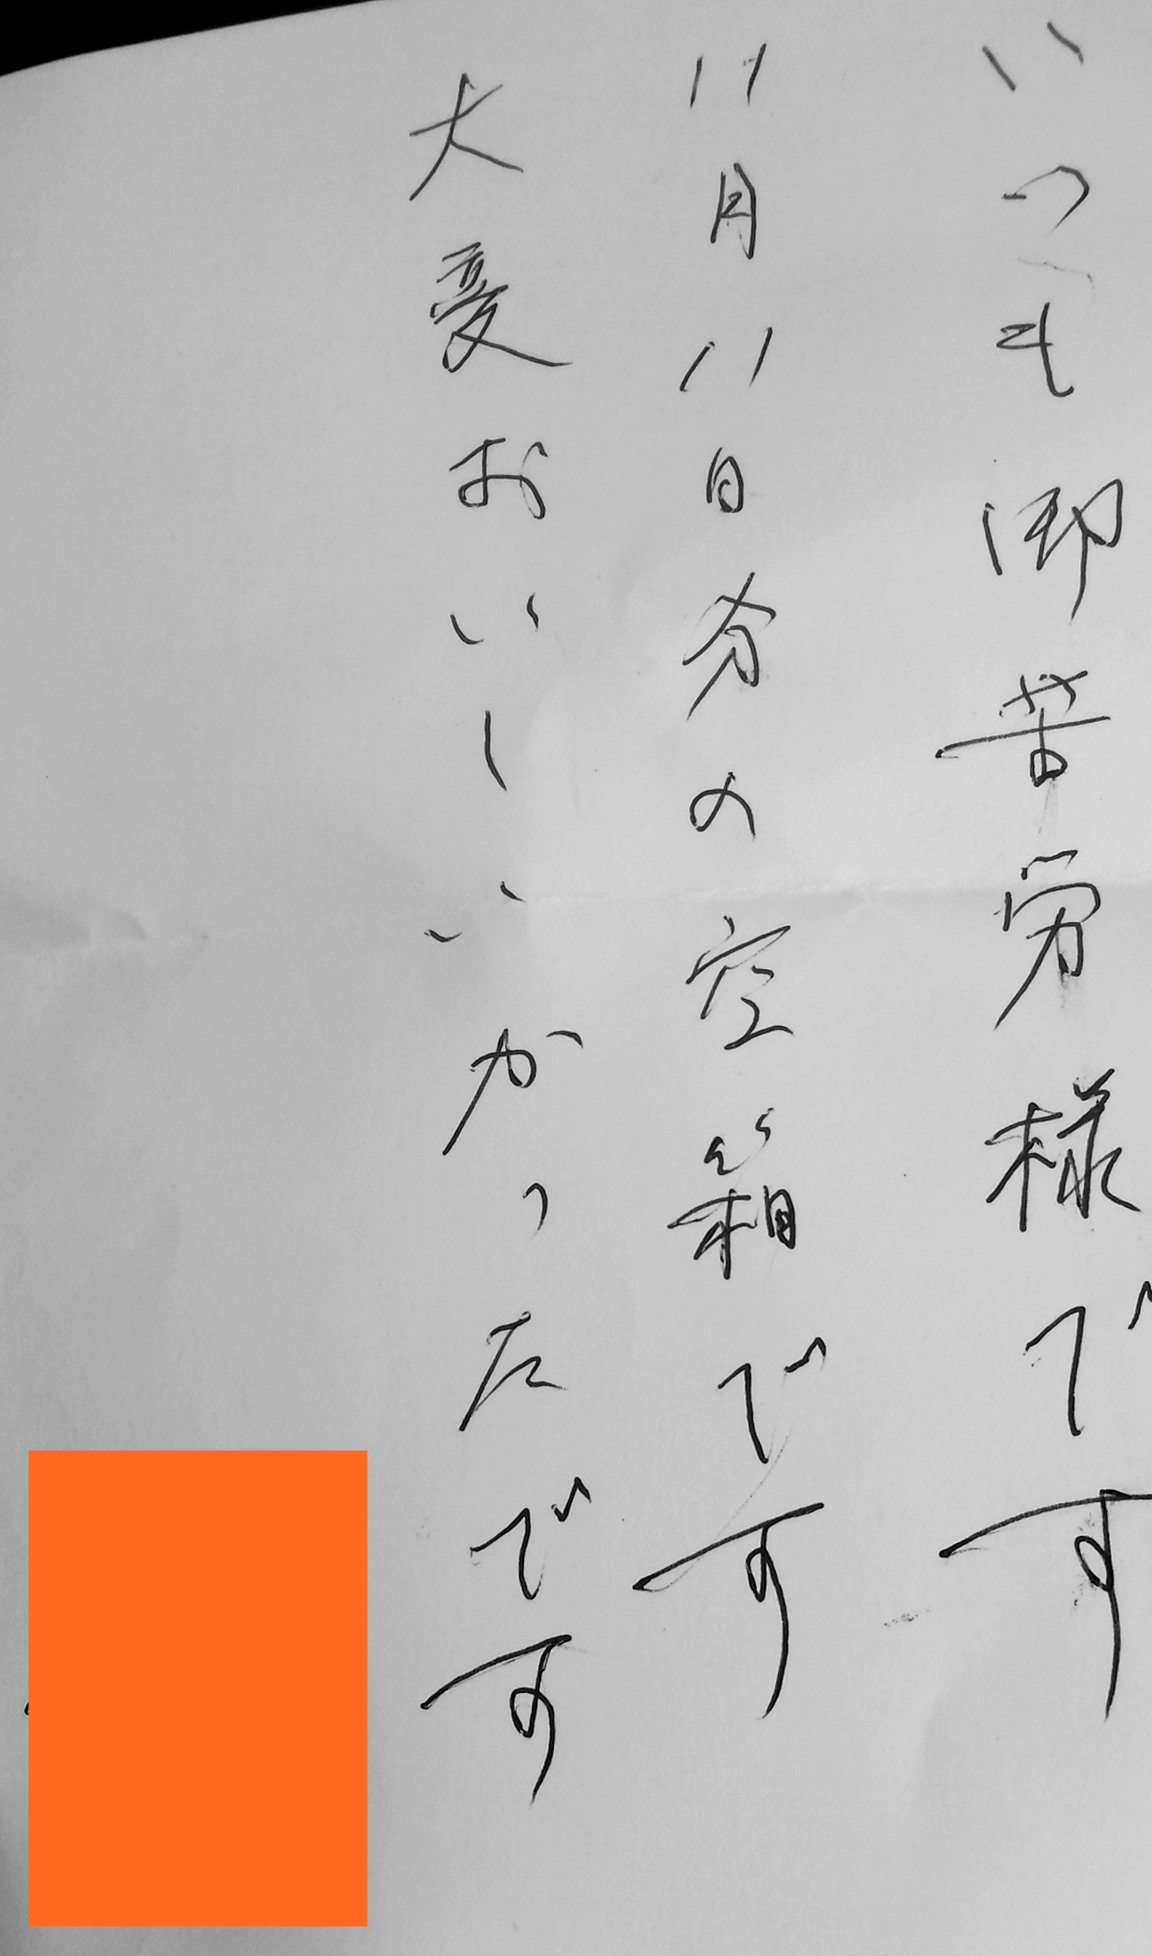 いつも御苦労様です
11月11日分の空箱です
大変おいしいかったです